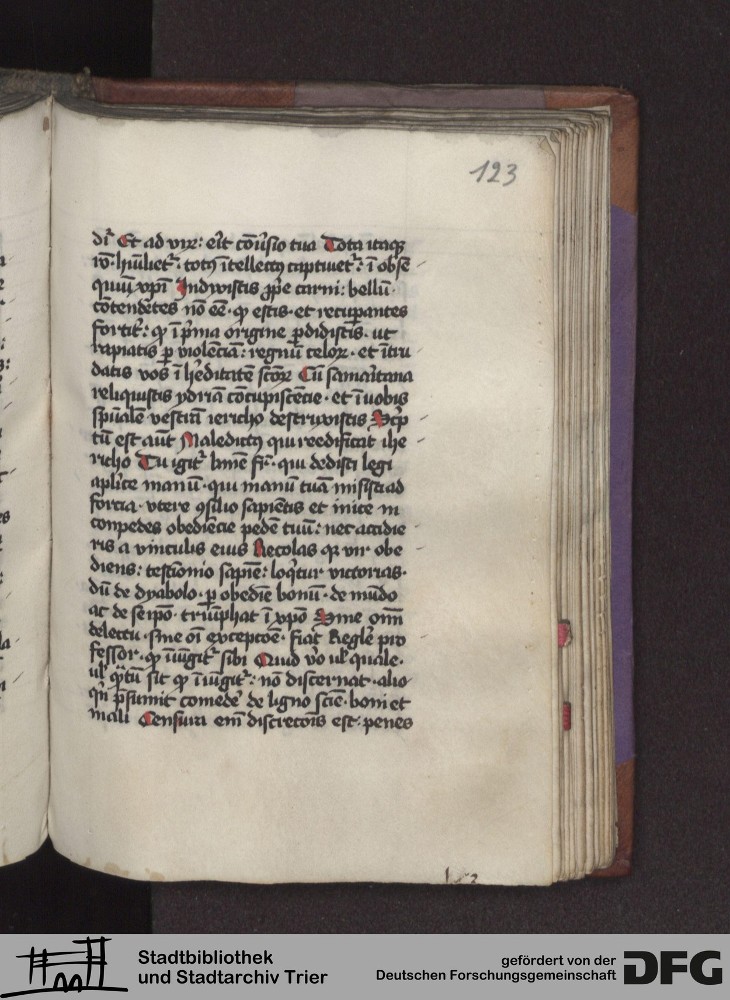 123
di͛ Et ad vix: eīt cōūsio tua Tota itaqꝫ
rō· hūiliet͛· totꝰ ītellectꝰ captiuet͛: ī obse
quiū xp̄i Indixistis ꝓp̄e carni: bellū·
cōtendētes nō eē· qꝫ estis· et recupantes
fortit͛: qꝫ ī p̄ma origine ꝑdidistis· ut
rapiatis ꝑ violēciā: regnū celoꝝ· et ītru
datis vos ī h̓editatē scōꝝ Cū samaritana
reliquistis ydriā cōcupiscēcie· et ī uobis
sp̄ualē vestrū iericho destruxistis Scp̄
tū est aūt Maledictꝰ qui reedificat ihe
richo Tu igit͛ bn̄ie fr̄· qui dedisti legi
aplice manū· qui manū tuā misisti ad
forcia· vtere ꝯsilio sapiētis et inice in
conpedes obediēcie pedē tuū: nec accidie
ris a vinculis eius Recolas qꝫ vir obe
diens: testīonio sapiē: loq̄tur victorias·
dū de dyabolo· ꝑ obediē bonū· de mūdo
ac de seipō· triūphat ī xp̄o Sine om̄i
delectu· sine oī excepcōe· fiat Regl̄e pro
fessor· qꝫ iūgit͛ sibi Quid v̓o ul̓ quale·
ul̓ q̄tū sit qꝫ īiūgit͛: nō discernat· alio
qn̄ p̄sumit comede᷑ de ligno sciē· boni et
mali Censura em̄ discrecōis est· penes
Stadtbibliothek
und Stadtarchiv Trier
gefördert von der
Deutschen Forschungsgemeinschaft
DFG